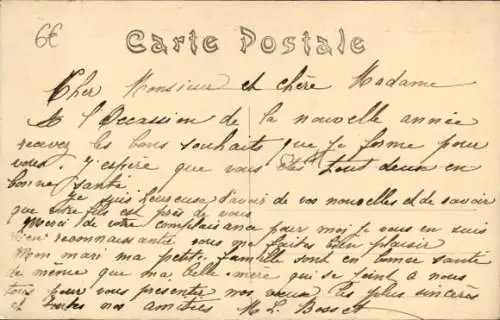 6€
Carte Postale
Cher Monsieur et chère Madame
A l'Occassion de la nouvelle année
recevez les bons souhaits que Je forme pour
vous. J'espère que vous êtes tout deux en
bonne santé
Je suis heureuse d'avoir de vos nouvelles et de savoir
que votre fils est près de vous
Merci de votre complaisance pour moi je vous en suis
bien reconnaissante vous me faites bien plaisir
Mon mari ma petite famille sont en bonne santé
de même que ma belle-mère qui se joint à nous
tous pour vous présenter nos voeux les plus sincères
et toutes nos amitiés M. L. Bosset